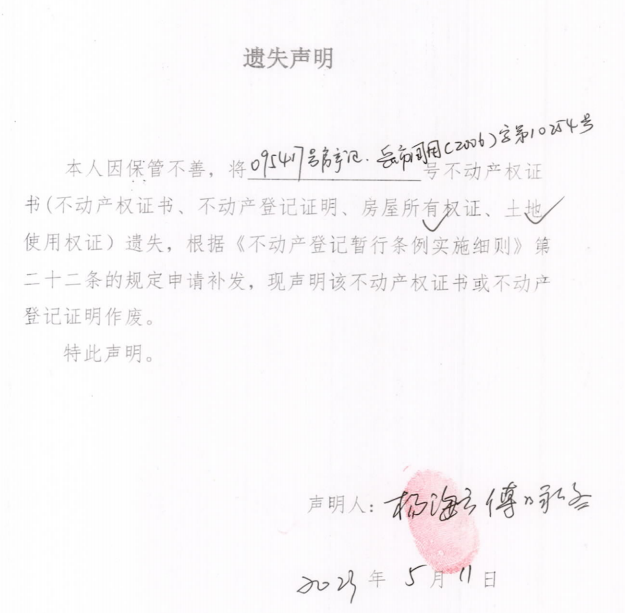 遗失声明
本人因保管不善，将095417号房字记.岳市国用(2006)字第10254号 号不动产权证
书(不动产权证书、不动产登记证明、房屋所有权证、土地
使用权证）遗失，根据《不动产登记暂行条例实施细则》第
二十二条的规定申请补发，现声明该不动产权证书或不动产
登记证明作废。
特此声明。
声明人：杨海云 傅
2023年5月11日